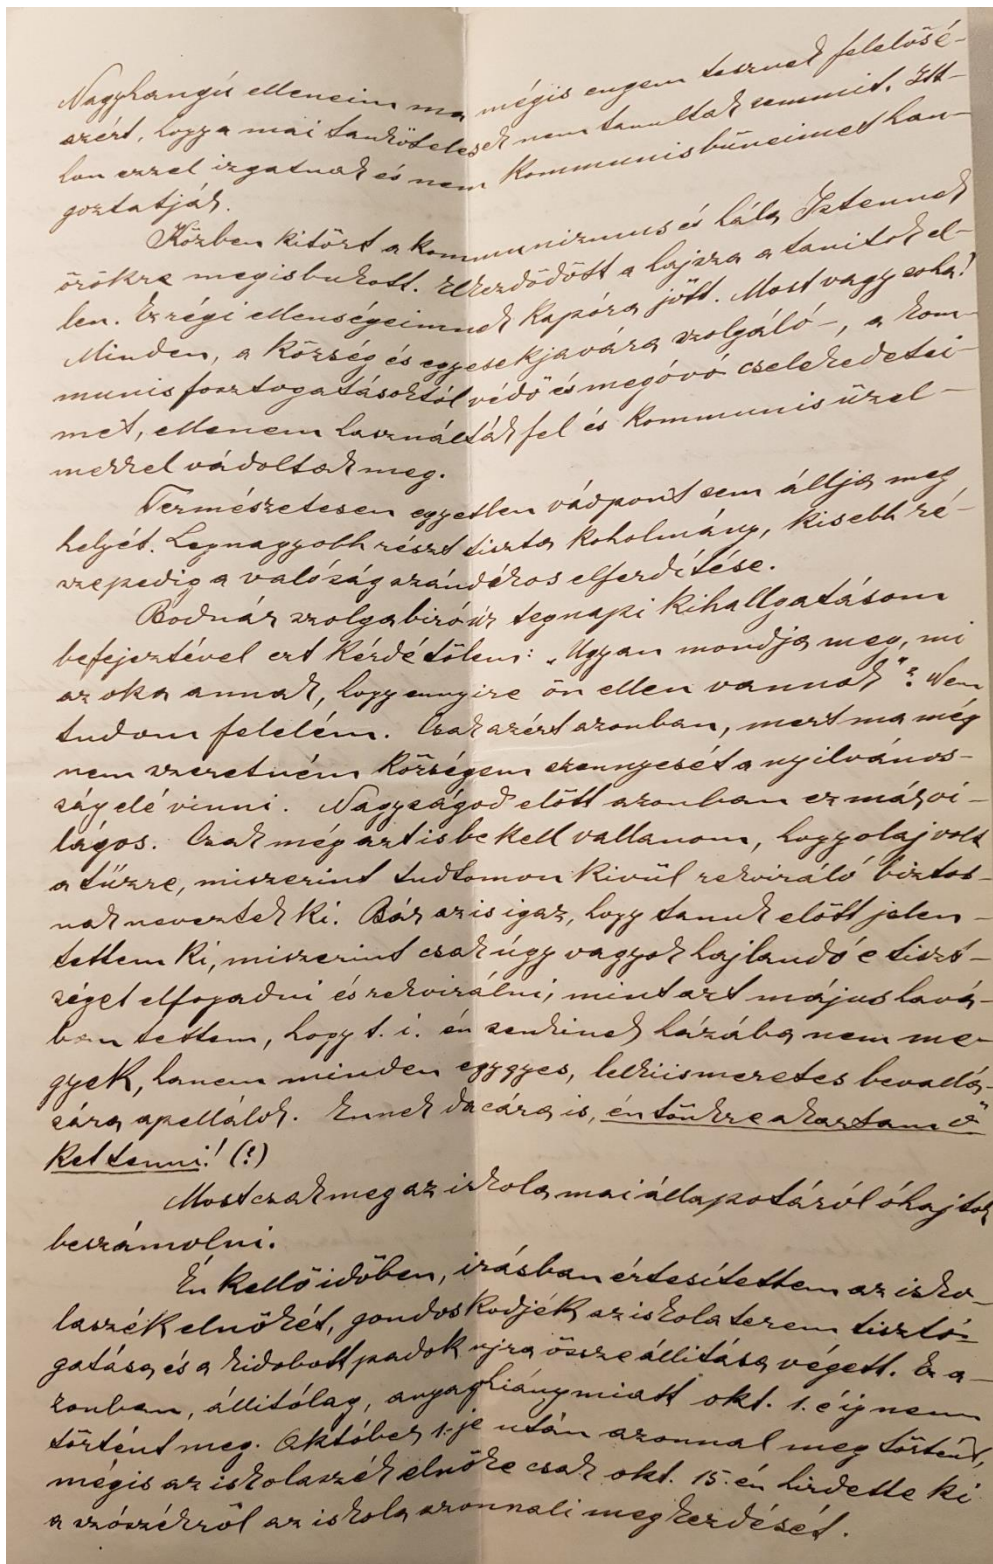 Nagyhangú elleneim ma mégis engem tesznek felelősé-
azért, hogy a mai tankötelesek nem tanultak semmit. Itt-
hon ezzel izgatnak és nem kommunis bűneimet han-
goztatják.
Közben kitört a kommunizmus és hála Istennek
örökre megis bukott. Elkezdődött a hajsza a tanitók el-
len. Ez régi ellenségeimnek kapóra jött. Most vagy soha!
Minden, a község és egyesek javára szolgáló-, a kom-
munis fosztogatásoktól védő és megóvó cselekedetei-
met, ellenem használták fel és kommunis üzel-
mekkel vádoltak meg.
Természetesen egyetlen vádpont sem állja meg
helyét. Legnagyobb részt tiszta koholmány, kisebb ré-
sze pedig a valóság szándékos elferdítése.
Bodnár szolgabiró úr tegnapi kihallgatásom
befejeztével ezt kérdé tőlem: „Ugyan mondja meg, mi
az oka annak, hogy ennyire ön ellen vannak"? Nem
tudom felelém. Csak azért azonban, mert ma még
nem szeretném községem szennyesét a nyilvános-
ság elé vinni. Nagyságod előtt azonban ez már vi-
lágos. Csak még azt is be kell vallanom, hogy olaj volt
a tűzre, miszerint tudtomon kivül rekviráló biztos-
nak neveztek ki. Bár az is igaz, hogy tanuk előtt jelen-
tettem ki, miszerint csak úgy vagyok hajlandó e tiszt-
séget elfogadni és rekvirálni, mint azt május havá-
ban tettem, hogy t. i. én senkinek házába nem me-
gyek, hanem minden egygyes, lelkiismeretes bevallá-
sára apellálok. Ennek dacára is, én tönkre akartam ő-
ket tenni! (?)
Most csak meg az iskola mai állapotáról óhajtok
beszámolni.
Én kellő időben, irásban értesítettem az isko-
laszék elnökét, gondoskodjék az iskola terem tisztó-
gatása és a kidobott padok ujra össze állitása végett. Ez a-
zonban, állitólag, anyaghiány miatt okt. 1. éig nem
történt meg. Október 1-je után azonnal meg történt,
mégis az iskolaszék elnöke csak okt. 15.-én hirdette ki
a szószékről az iskola azonnali megkezdését.